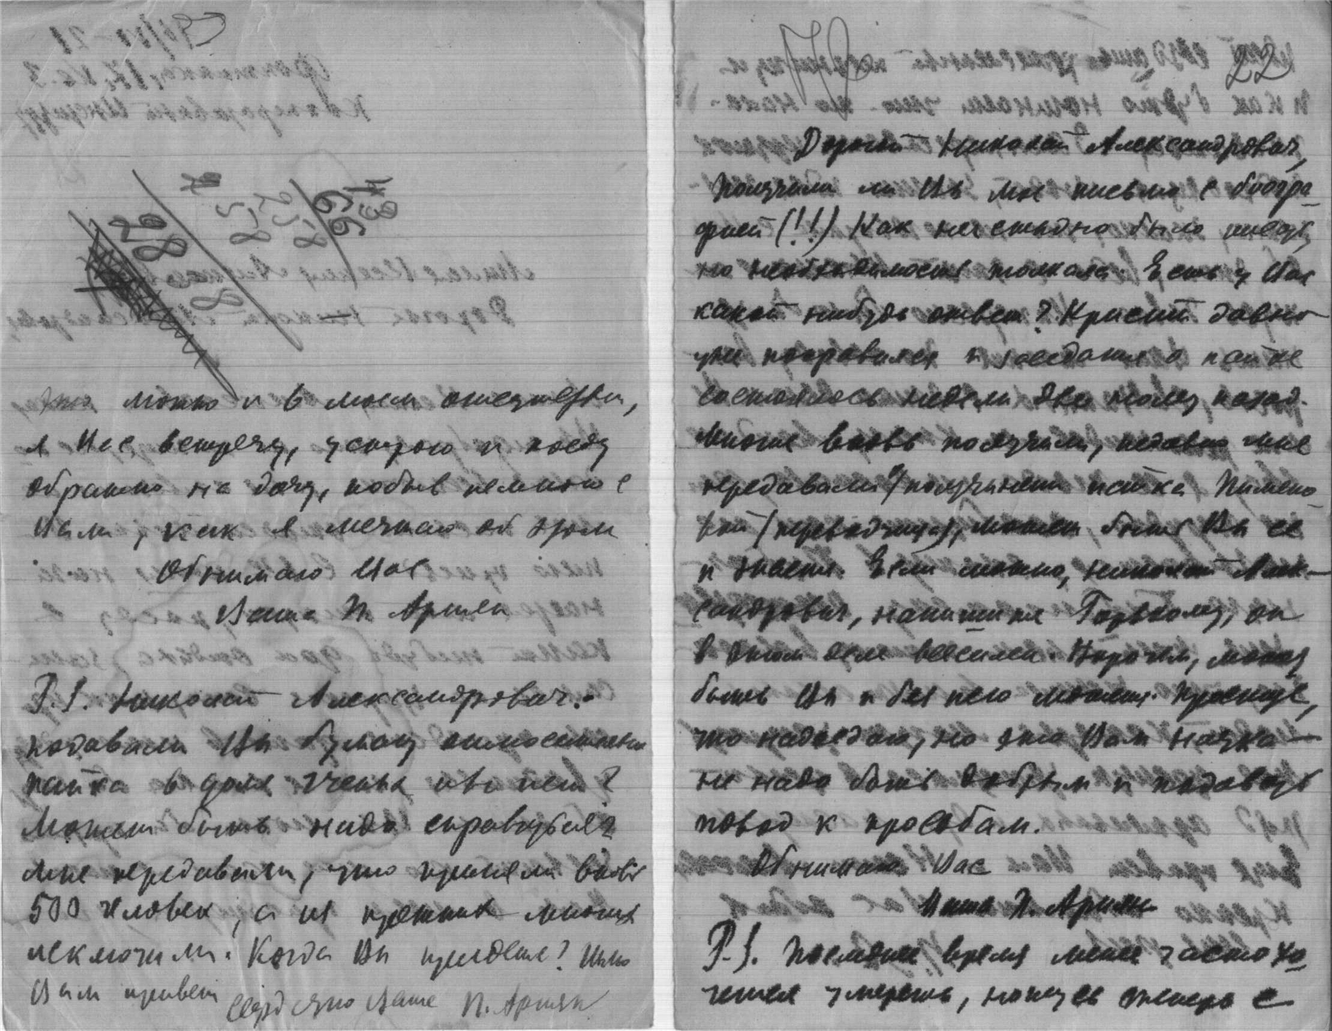 это можно и в моем отсутствии,
я Вас встречу, устрою и поеду
обратно на дачу, побыв немного с
Вами, как я мечтаю об этом
Обнимаю Вас
Ваша П. Ариян
P.S. Николай Александрович.
подавали Вы бумагу относительно
пайка в дом ученых или нет?
Может быть надо справиться?
Мне передавали, что приняли вновь
500 человек, а из прежних многих
исключили. Когда Вы приедете? Шлю
Вам привет
сердечно Ваша П. Ариян
22
Дорогой Николай Александрович,
Получили ли Вы мое письмо с биогра-
фией (!!) Как ни стыдно было писать,
но необходимость толкала. Есть у Вас
какой нибудь ответ? Кристи давно
уже поправился и заседание о пайке
состоялось недели две тому назад.
Многие вновь получили, недавно мне
передавали о получении пайка Пимено
вой (переводчица), может быть Вы ее
и знаете. Если можно, Николай Алек-
сандрович, напишите Горькому, он
в этом деле всесилен. Впрочем, может
быть Вы и без него можете. Простите,
что надоедаю, но это Вам наука —
не надо быть добрым и подавать
повод к просьбам.
Обнимаю Вас
Ваша П. Ариян
P.S. Последнее время мне часто хо-
чется умереть, но теперь с